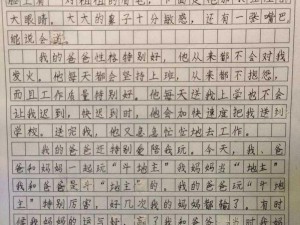 大眼睛。大大的鼻子十分敏感,还有一张嘴巴
能说会道。
我的爸爸性格特别好,他从来都不会对我
发火。他每天都会坚持上班,从来都不抱怨,
而且工作质量特别好。他每天送我上学也不会
让我迟到,快迟到时,他会加快速度把我送到
学校。送完我,他又急急忙忙地去工作。
我的爸爸特别爱陪我玩。今天,我、爸
爸和妈妈一起玩“斗地主”我妈妈当“地主”
我和爸爸是斗“地主”的。我的爸爸玩“斗地
主”特别厉害,好几次我的妈妈都输了。有时
候我妈妈的运气好,赢了我和爸爸,当时妈妈